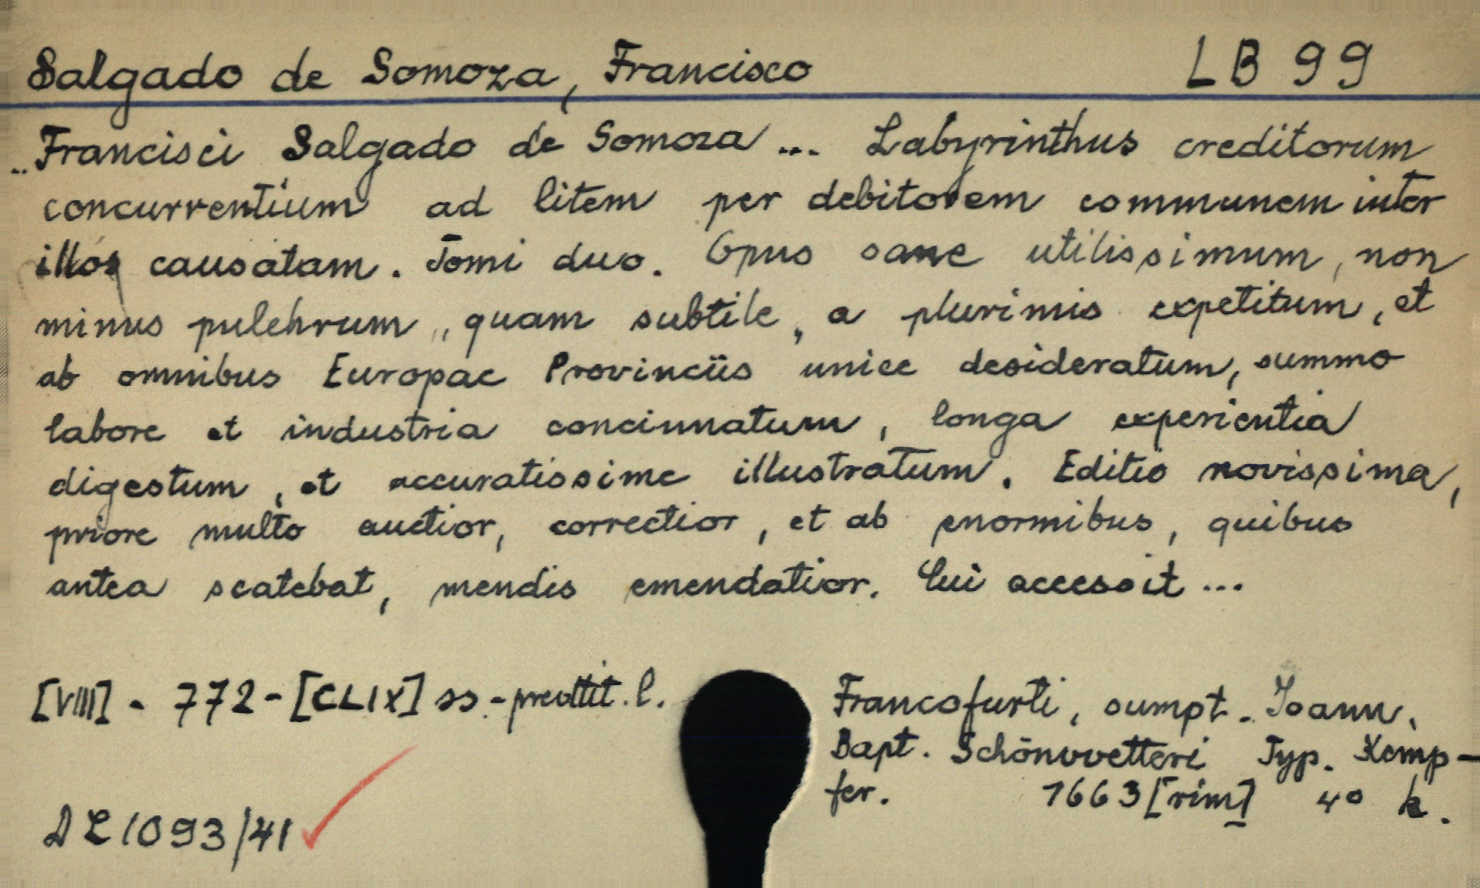 Salgado de Somoza, Francisco LB 99
Francisci Salgado de Somoza ... Labyrinthus creditorum
concurrentium ad litem per debitorem communem inter
illos causatam. Tomi duo. Opus sane utilissimum, non
minus pulchrum, quam subtile, a plurimis expetitum, et
ab omnibus Europae Provinciis unice desideratum, summo
labore et industria concinnatum, longa experientia
digestum, et accuratissime illustratum. Editio novissima,
priore multo auctior, correctior, et ab enormibus, quibus
antea scatebat, mendis emendatior. Cui accessit ...
[VIII] - 772 - [CLIX] ss. l.
Francofurti, sumpt. Joann.
Bapt. Schönvvetteri Typ. Kemp-
fer. 1663 [rim] 4° k.
1093/41